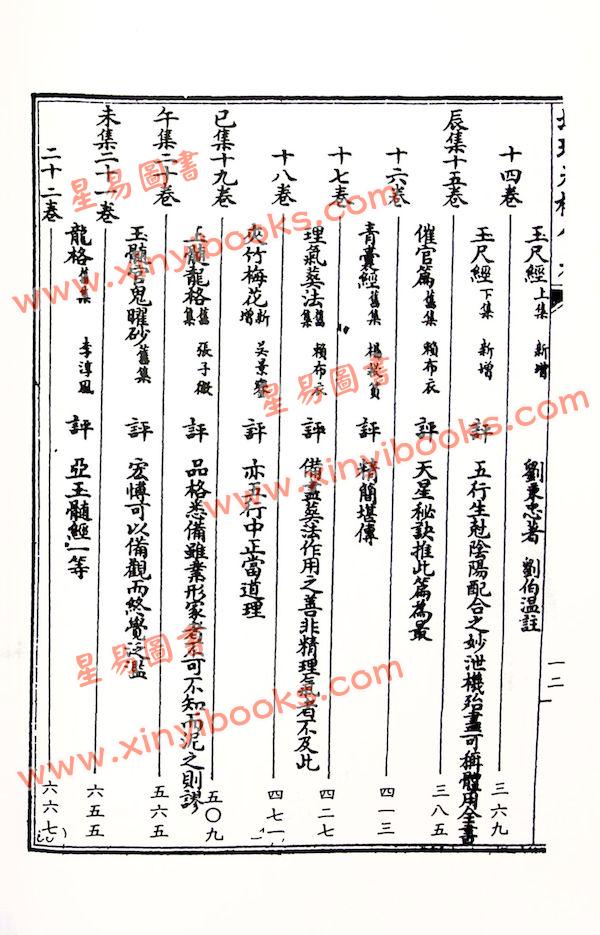 十四卷　玉尺經上集　新增　劉秉忠著　劉伯温註　三六九
辰集十五卷　玉尺經下集　新增　評　五行生尅陰陽配合之妙泄機殆盡可稱體用全書　三八五
十六卷　催官篇舊集　賴布衣　評　天星秘訣推此篇為最　四一三
十七卷　青囊經舊集　楊救貧　評　精簡堪傳　四二七
十八卷　理氣葬法舊集　賴布衣　評　備盡葬法作用之善非精理氣者不及此　四七一
巳集十九卷　夾竹梅花新增　吳景鸞　評　亦五行中正當道理　五〇九
午集二十卷　玉髓龍格舊集　張子微　評　品格悉備雖業形家者不可不知而泥之則謬　五六五
未集二十一卷　玉髓官鬼曜砂舊集　評　宏愽可以備觀而終覺泛濫　六五五
二十二卷　龍格舊集　李淳風　評　亞玉髓經一等　六六七
一二
星易圖書
www.xinyibooks.com
星易圖書
www.xinyibooks.com
星易圖書
www.xinyibooks.com